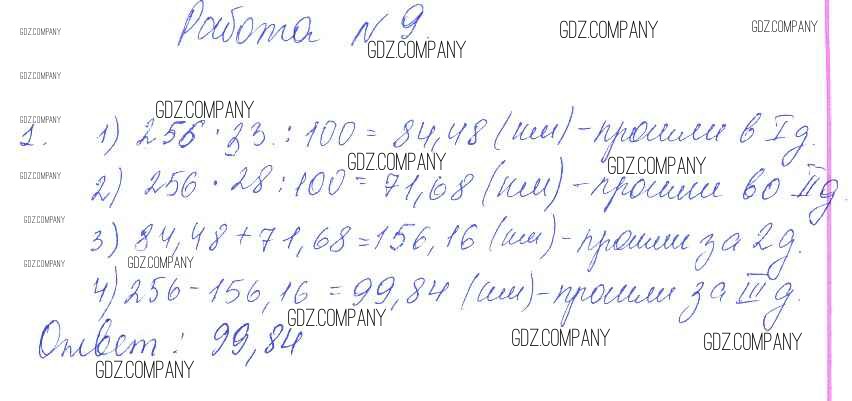 GDZ.COMPANY
Работа N 9.
GDZ.COMPANY
GDZ.COMPANY
GDZ.COMPANY
GDZ.COMPANY
GDZ.COMPANY
GDZ.COMPANY
1. 1) 256 · 33 : 100 = 84,48 (км) - прошли в I д.
GDZ.COMPANY
GDZ.COMPANY
GDZ.COMPANY
2) 256 · 28 : 100 = 71,68 (км) - прошли во II д.
GDZ.COMPANY
3) 84,48 + 71,68 = 156,16 (км) - прошли за 2 д.
GDZ.COMPANY
GDZ.COMPANY
4) 256 - 156,16 = 99,84 (км) - прошли за III д.
GDZ.COMPANY
Ответ: 99,84
GDZ.COMPANY
GDZ.COMPANY
GDZ.COMPANY